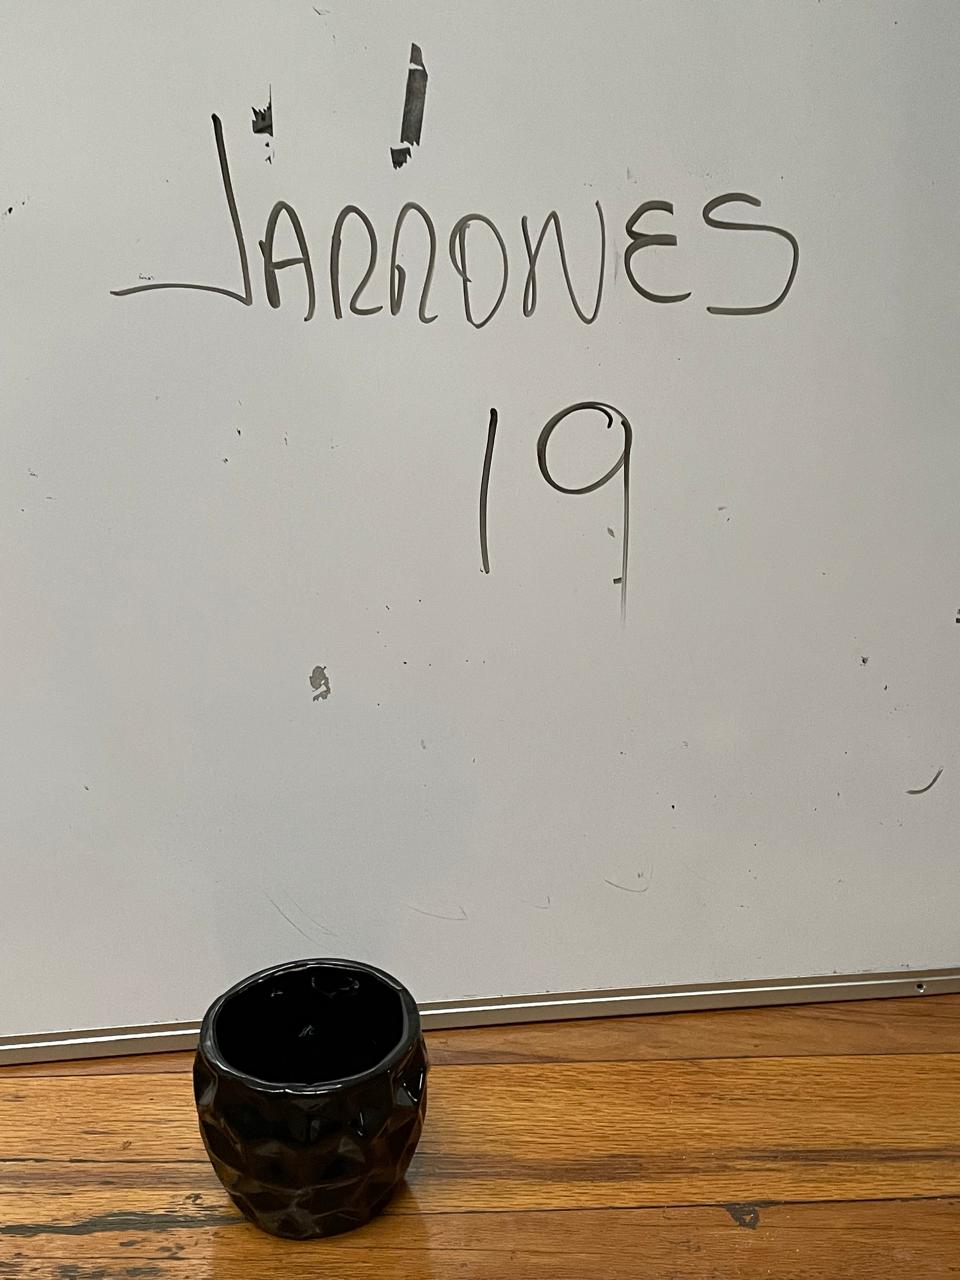 JARRONES
19